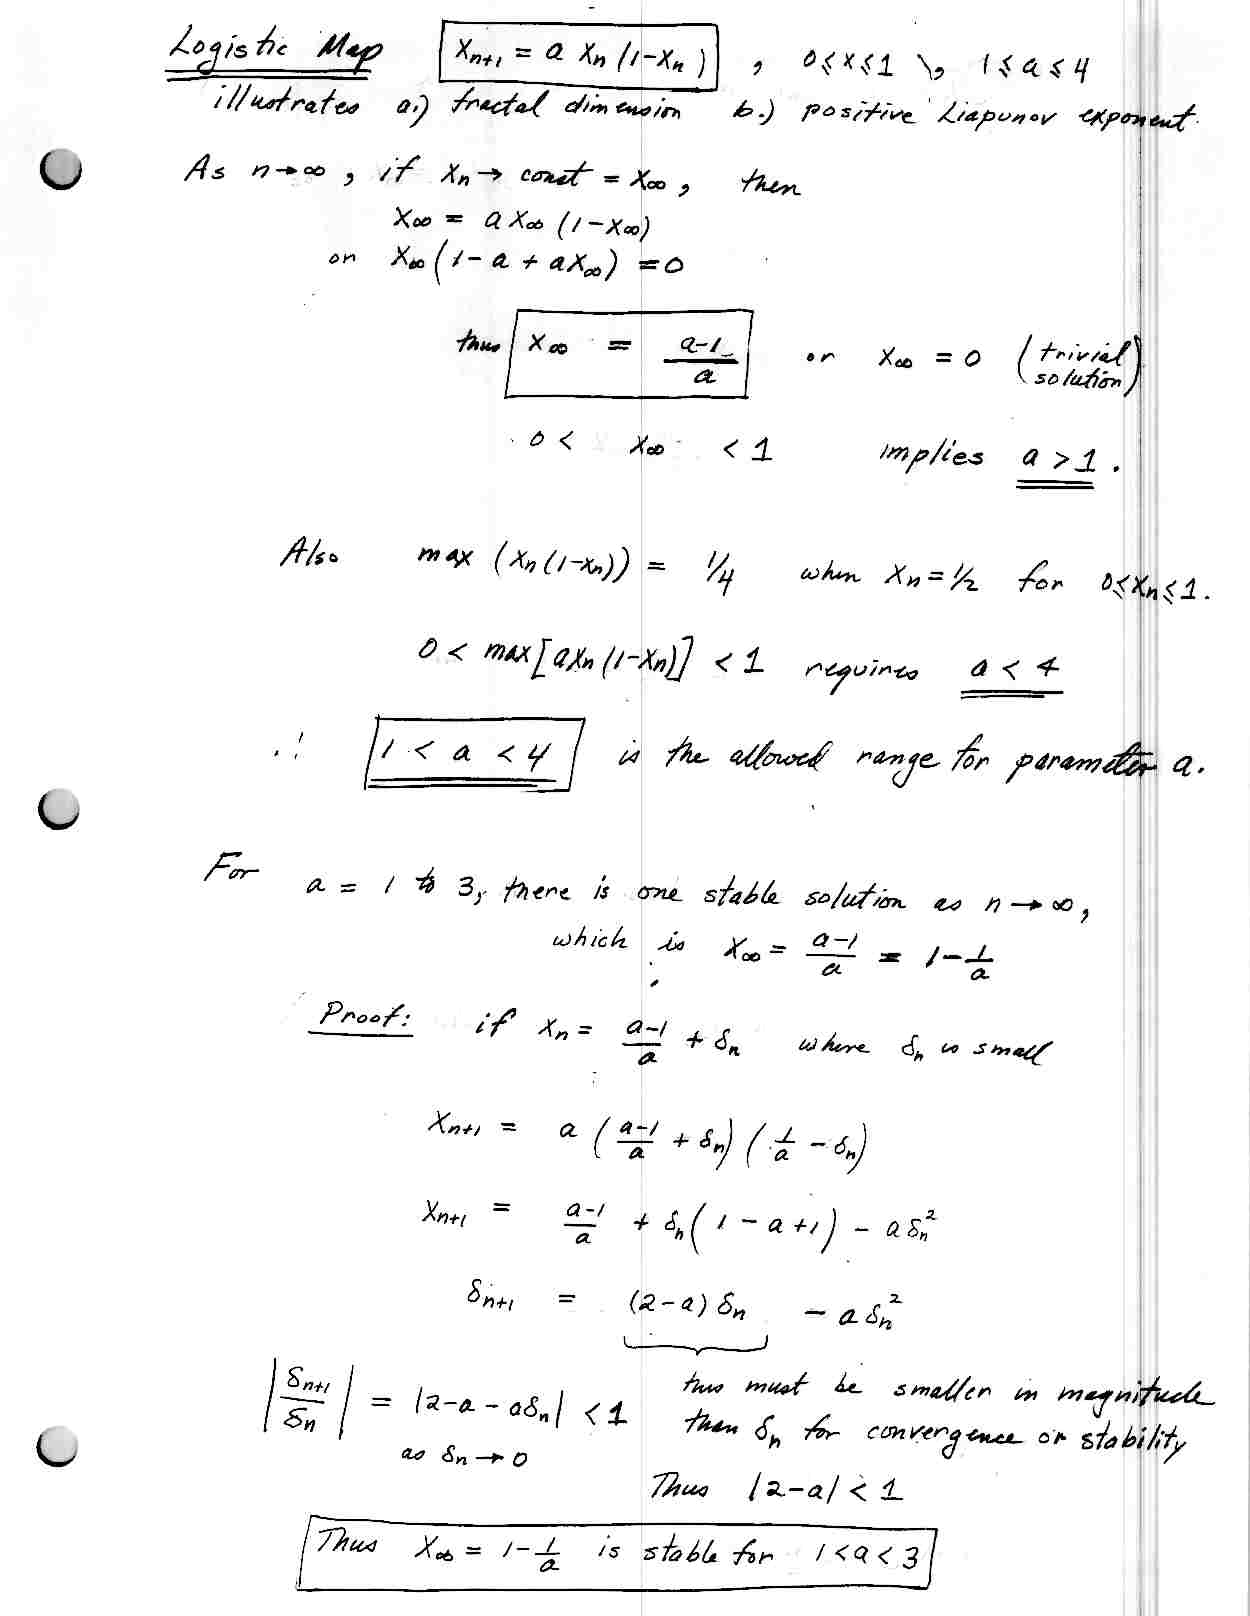 Logistic Map   Xn+1 = a Xn (1-Xn) , 0≤x≤1 , 1≤a≤4
illustrates a.) fractal dimension b.) positive Liapunov exponent.
As n→∞, if Xn→ const = X∞, then
X∞ = a X∞ (1-X∞)
or X∞ (1-a + aX∞) = 0
thus X∞ = (a-1)/a or X∞ = 0 (trivial solution)
0 < X∞ < 1 implies a > 1.
Also max (Xn(1-Xn)) = 1/4 when Xn = 1/2 for 0≤Xn≤1.
0 < max[aXn(1-Xn)] < 1 requires a < 4
∴ 1 < a < 4 is the allowed range for parameter a.
For a = 1 to 3, there is one stable solution as n→∞,
which is X∞ = (a-1)/a = 1 - 1/a
Proof: if Xn = (a-1)/a + δn where δn is small
Xn+1 = a ((a-1)/a + δn) (1/a - δn)
Xn+1 = (a-1)/a + δn (1 - a + 1) - a δn²
δn+1 = (2-a) δn - a δn²
|δn+1/δn| = |2-a - aδn| < 1 this must be smaller in magnitude
as δn→0 than δn for convergence or stability
Thus |2-a| < 1
Thus X∞ = 1 - 1/a is stable for 1<a<3